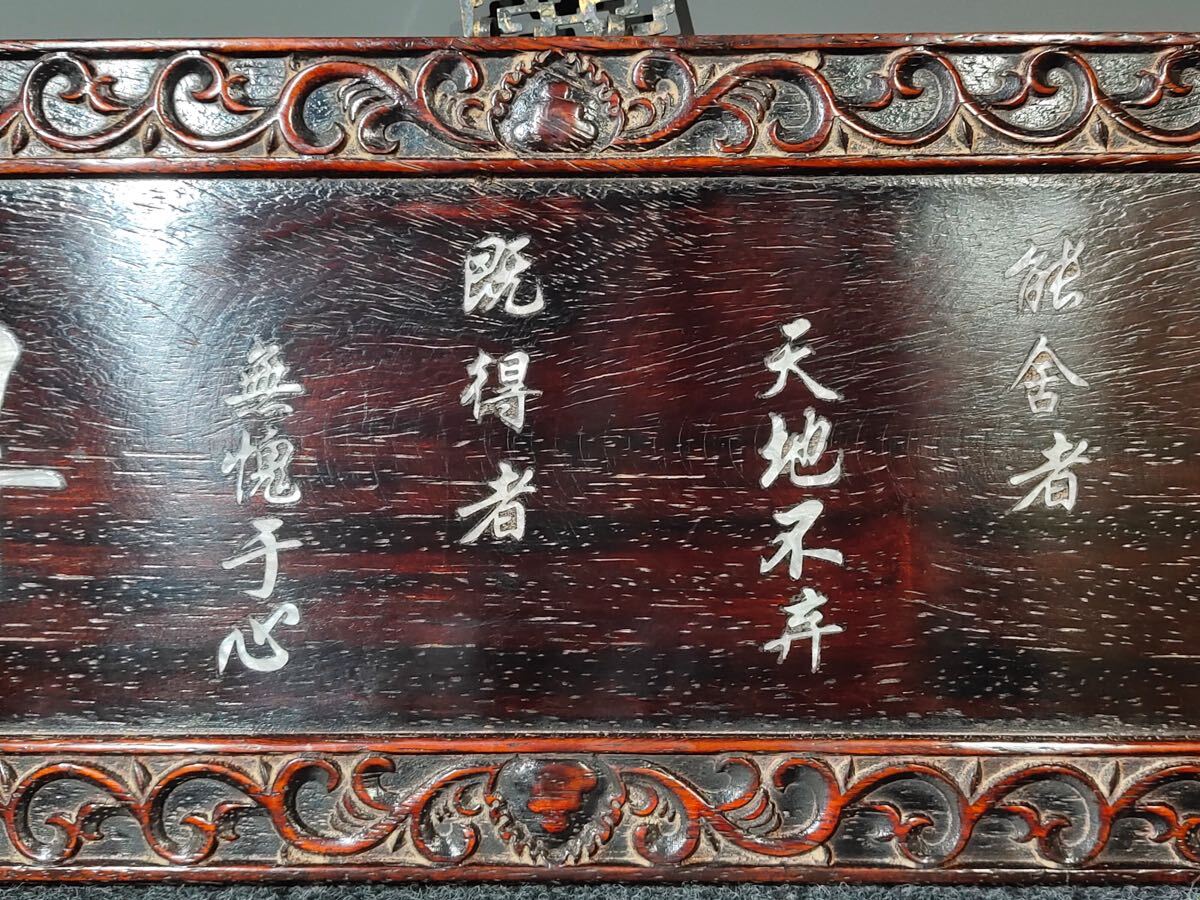 能舍者
天地不弃
既得者
無愧于心